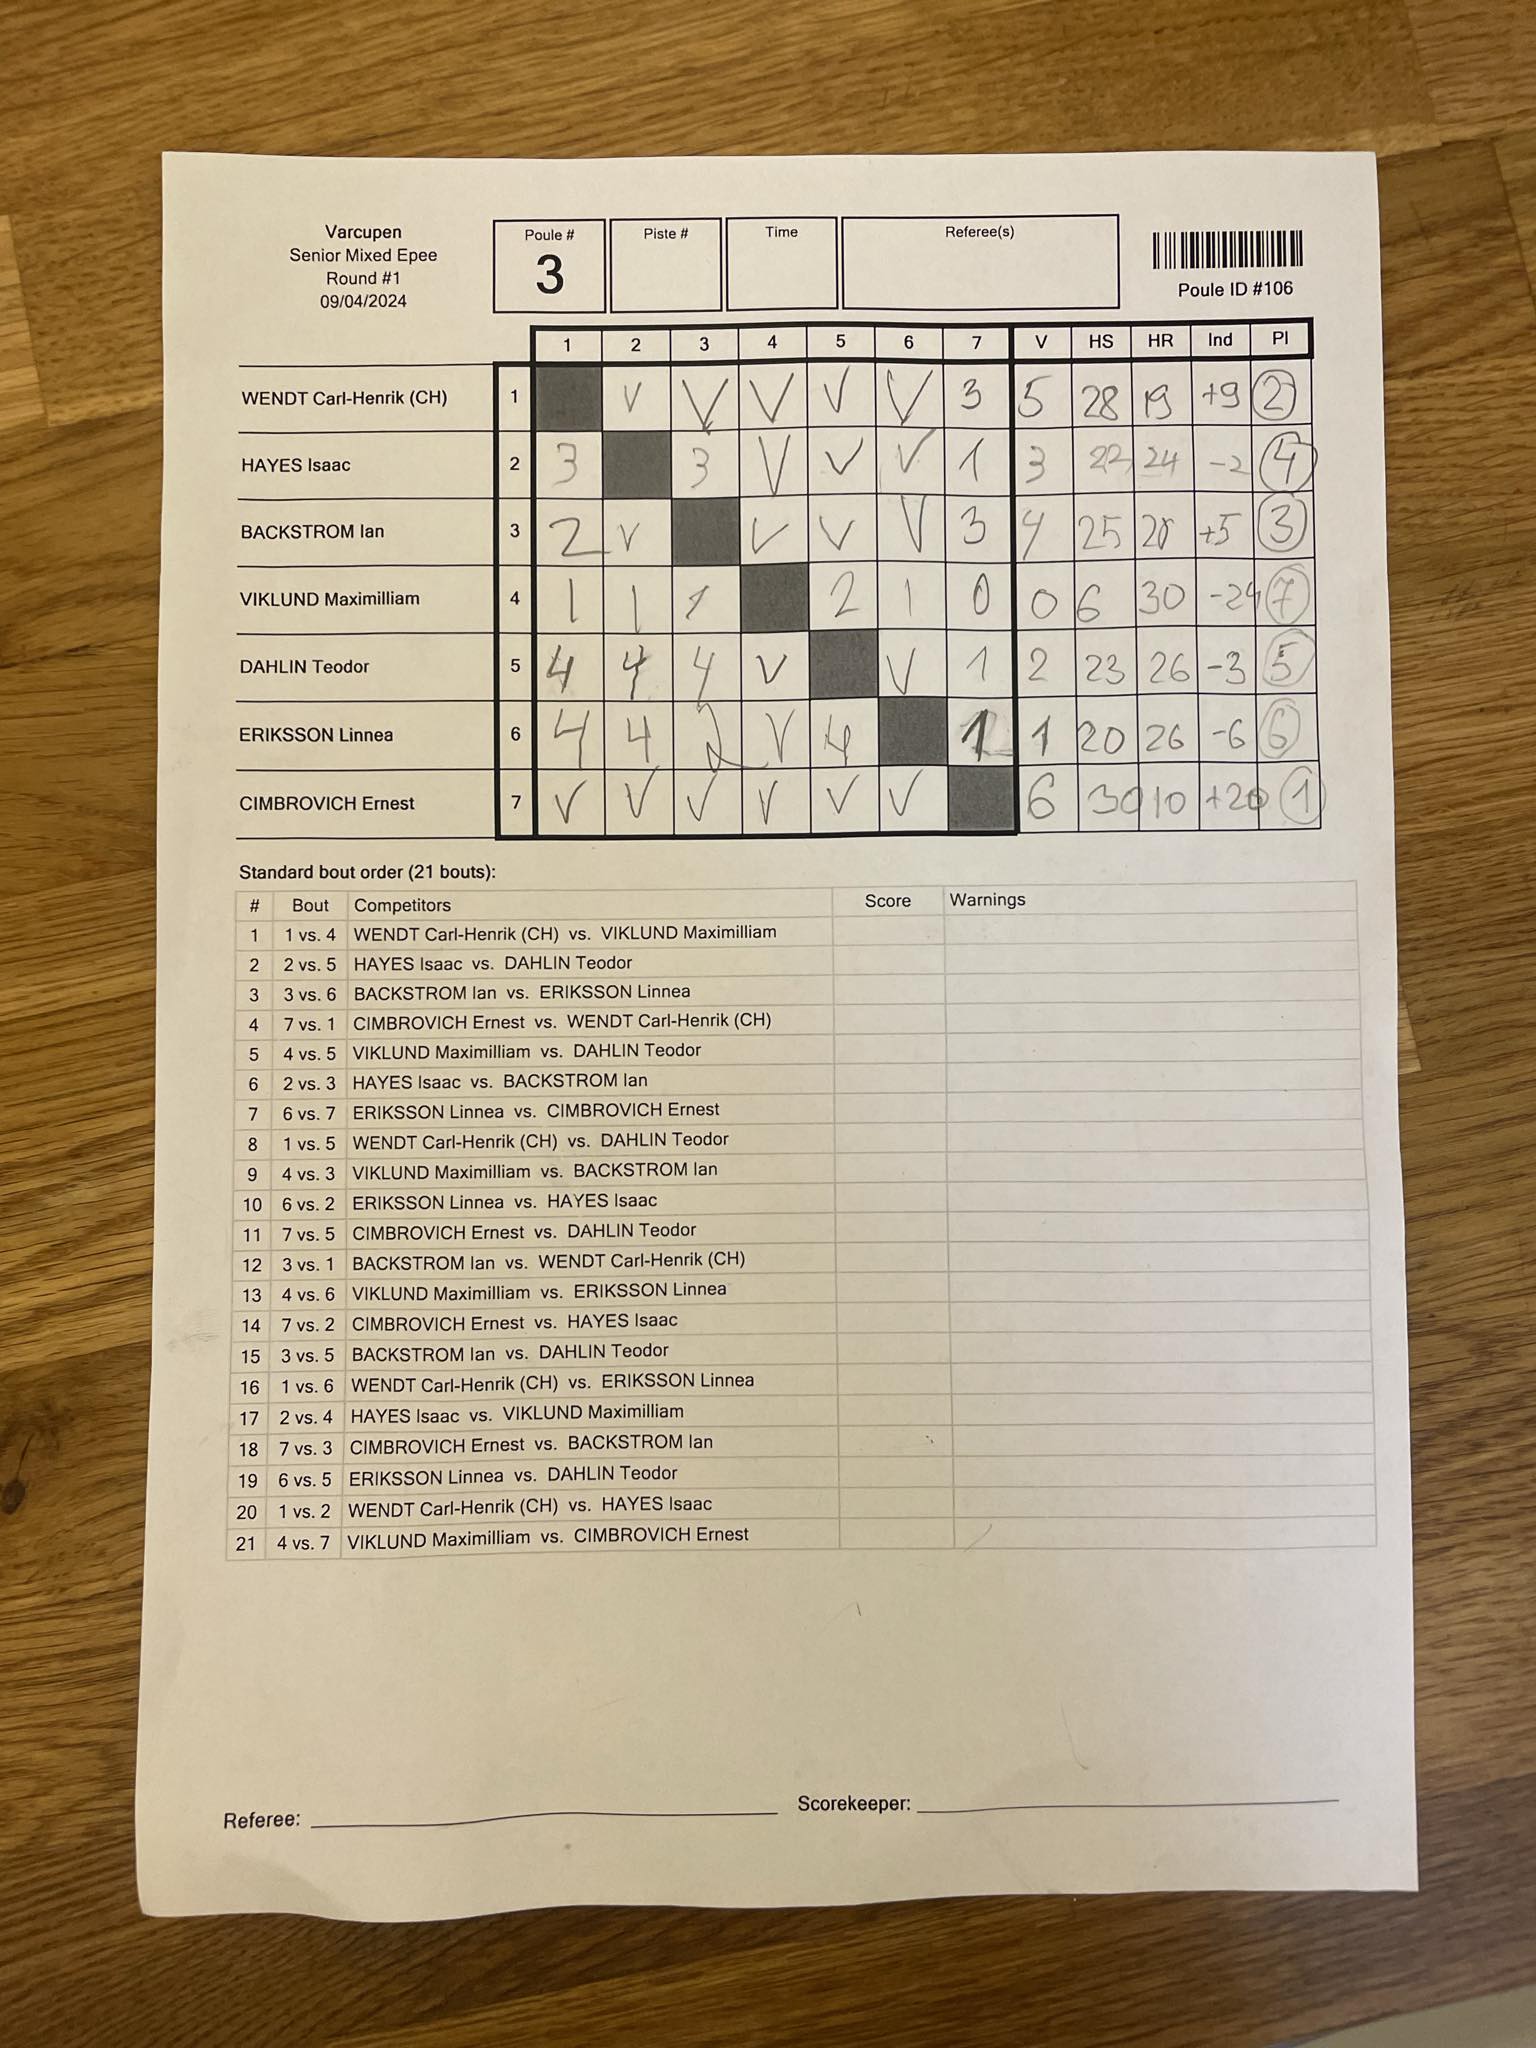 Varcupen
Senior Mixed Epee
Round #1
09/04/2024
Poule #
3
Piste #
Time
Referee(s)
Poule ID #106
1 2 3 4 5 6 7 V HS HR Ind Pl
WENDT Carl-Henrik (CH) 1 V V V V V 3 5 28 19 +9 2
HAYES Isaac 2 3 3 V V V 1 3 22 24 -2 4
BACKSTROM Ian 3 2 V V V V 3 4 25 20 +5 3
VIKLUND Maximilliam 4 1 1 1 2 1 0 0 6 30 -24 7
DAHLIN Teodor 5 4 4 4 V V 1 2 23 26 -3 5
ERIKSSON Linnea 6 4 4 2 V 4 1 1 20 26 -6 6
CIMBROVICH Ernest 7 V V V V V V 6 30 10 +20 1
Standard bout order (21 bouts):
# Bout Competitors Score Warnings
1 1 vs. 4 WENDT Carl-Henrik (CH) vs. VIKLUND Maximilliam
2 2 vs. 5 HAYES Isaac vs. DAHLIN Teodor
3 3 vs. 6 BACKSTROM Ian vs. ERIKSSON Linnea
4 7 vs. 1 CIMBROVICH Ernest vs. WENDT Carl-Henrik (CH)
5 4 vs. 5 VIKLUND Maximilliam vs. DAHLIN Teodor
6 2 vs. 3 HAYES Isaac vs. BACKSTROM Ian
7 6 vs. 7 ERIKSSON Linnea vs. CIMBROVICH Ernest
8 1 vs. 5 WENDT Carl-Henrik (CH) vs. DAHLIN Teodor
9 4 vs. 3 VIKLUND Maximilliam vs. BACKSTROM Ian
10 6 vs. 2 ERIKSSON Linnea vs. HAYES Isaac
11 7 vs. 5 CIMBROVICH Ernest vs. DAHLIN Teodor
12 3 vs. 1 BACKSTROM Ian vs. WENDT Carl-Henrik (CH)
13 4 vs. 6 VIKLUND Maximilliam vs. ERIKSSON Linnea
14 7 vs. 2 CIMBROVICH Ernest vs. HAYES Isaac
15 3 vs. 5 BACKSTROM Ian vs. DAHLIN Teodor
16 1 vs. 6 WENDT Carl-Henrik (CH) vs. ERIKSSON Linnea
17 2 vs. 4 HAYES Isaac vs. VIKLUND Maximilliam
18 7 vs. 3 CIMBROVICH Ernest vs. BACKSTROM Ian
19 6 vs. 5 ERIKSSON Linnea vs. DAHLIN Teodor
20 1 vs. 2 WENDT Carl-Henrik (CH) vs. HAYES Isaac
21 4 vs. 7 VIKLUND Maximilliam vs. CIMBROVICH Ernest
Referee: Scorekeeper: